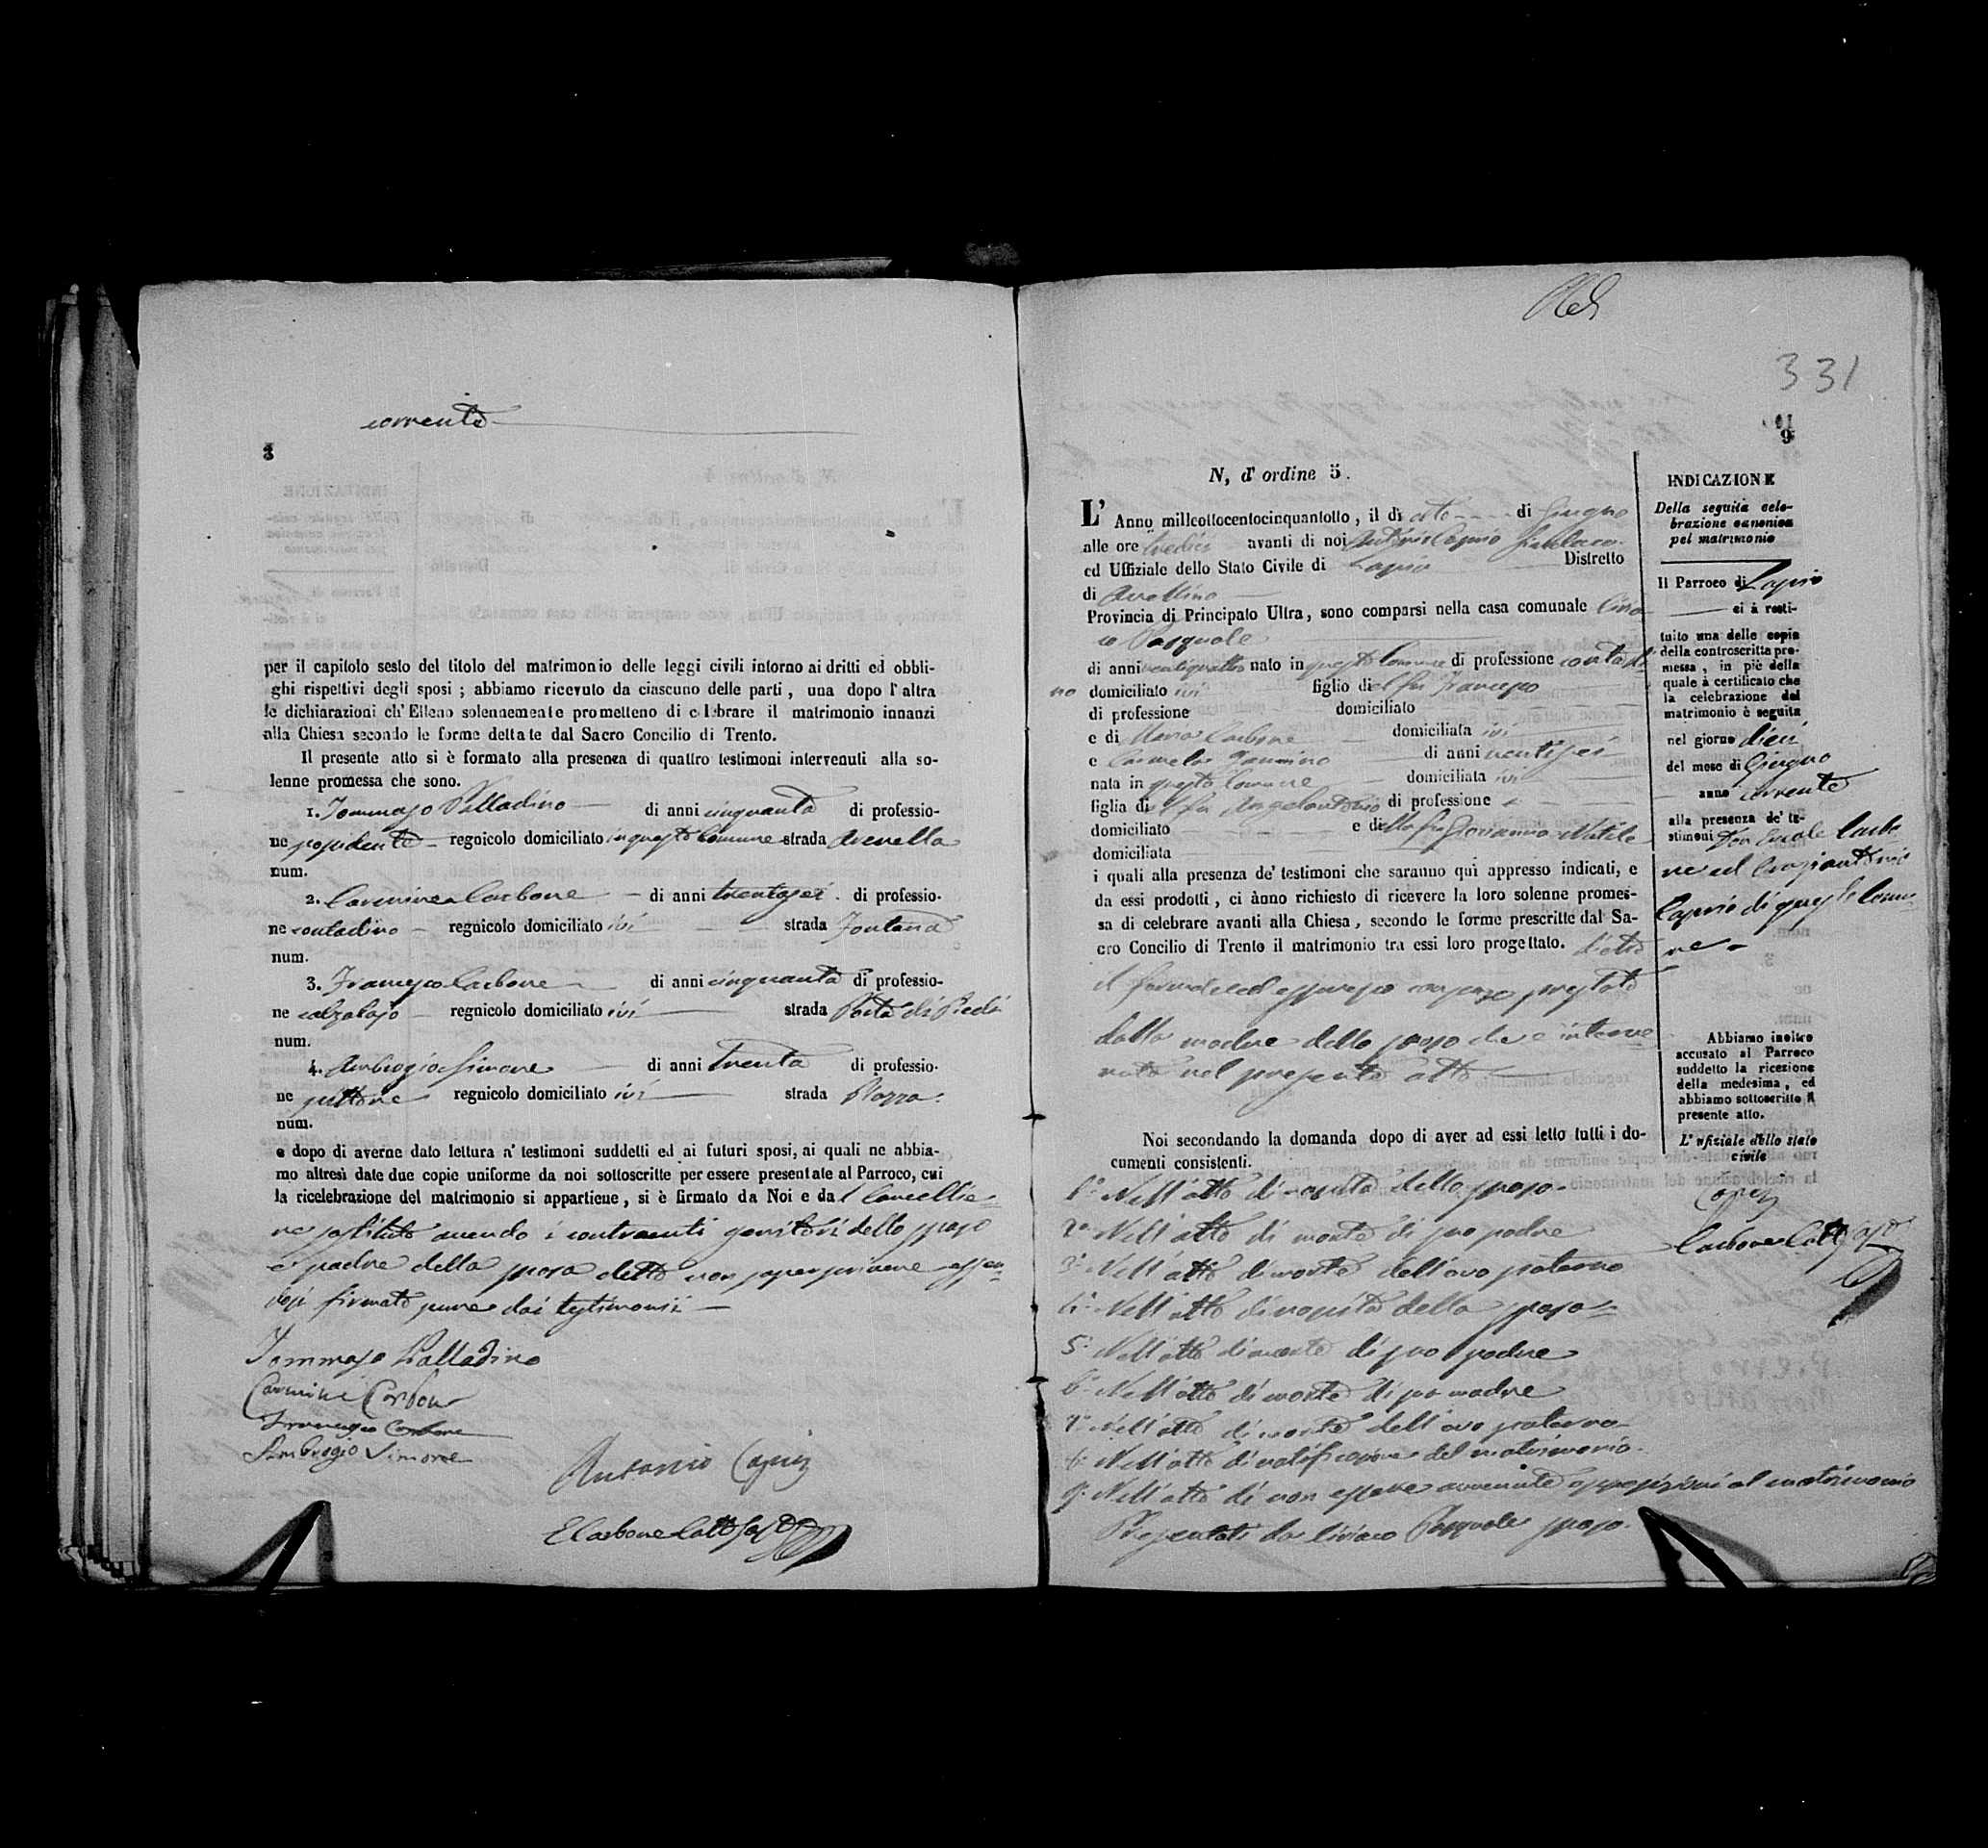 corrente
8
per il capitolo sesto del titolo del matrimonio delle leggi civili intorno ai dritti ed obbli-
ghi rispettivi degli sposi ; abbiamo ricevuto da ciascuno delle parti , una dopo l'altra
le dichiarazioni ch'Elleno solennemente promettono di celebrare il matrimonio innanzi
alla Chiesa secondo le forme dettate dal Sacro Concilio di Trento.
Il presente atto si è formato alla presenza di quattro testimoni intervenuti alla so-
lenne promessa che sono.
1. Tommaso Palladino di anni cinquanta di professio-
ne possidente regnicolo domiciliato in questo Comune strada
num.
2. Carmine Carbone di anni trentasei di professio-
ne contadino regnicolo domiciliato ivi strada Fontana
num.
3. Francesco Carbone di anni cinquanta di professio-
ne calzolajo regnicolo domiciliato ivi strada Porta di Piedi
num.
4. Ambrogio Simone di anni trenta di professio-
ne regnicolo domiciliato ivi strada Piazza
num.
e dopo di averne dato lettura a' testimoni suddetti ed ai futuri sposi, ai quali ne abbia-
mo altresì date due copie uniforme da noi sottoscritte per essere presentate al Parroco, cui
la ricelebrazione del matrimonio si appartiene , si è firmato da Noi e dal Cancellie-
re sostituto avendo i contraenti genitori dello sposo
e padre della sposa detto non saper scrivere essen-
dosi firmato pure dai testimonii
Tommaso Palladino
Carmine Carbone
Francesco Carbone
Ambrogio Simone
Antonio Caprio
E Carbone Catt Sost
331
9
N. d'ordine 5.
L'Anno milleottocentocinquantotto , il dì otto di Giugno
alle ore tredici avanti di noi Antonio Caprio Sindaco
ed Uffiziale dello Stato Civile di Lapio Distretto
di Avellino
Provincia di Principato Ultra, sono comparsi nella casa comunale Ciria-
co Pasquale
di anni ventiquattro nato in questo Comune di professione contadi-
no domiciliato ivi figlio del fu Francesco
di professione domiciliato
e di Maria Carbone domiciliata ivi
e Carmela di anni ventisei
nata in questo Comune domiciliata ivi
figlia del fu Angelantonio di professione
domiciliato e della fu Giovanna
domiciliata
i quali alla presenza de' testimoni che saranno qui appresso indicati, e
da essi prodotti , ci ànno richiesto di ricevere la loro solenne promes-
sa di celebrare avanti alla Chiesa , secondo le forme prescritte dal Sa-
cro Concilio di Trento il matrimonio tra essi loro progettato.
il formale ed espresso consenso prestato
dalla madre dello sposo che è interve
nuta nel presente atto
Noi secondando la domanda dopo di aver ad essi letto tutti i do-
cumenti consistenti.
1° Nell'atto di nascita dello sposo
2° Nell'atto di morte di suo padre
3° Nell'atto di morte dell'avo paterno
4° Nell'atto di nascita della sposa
5° Nell'atto di morte di suo padre
6° Nell'atto di morte di sua madre
7° Nell'atto di morte dell'avo paterno
8° Nell'atto di notificazione del matrimonio
9° Nell'atto di non essere avvenute opposizioni al matrimonio
Presentati da Ciriaco Pasquale sposo.
INDICAZIONE
Della seguita cele-
brazione canonica
pel matrimonio
Il Parroco di Lapio
ci à resti-
tuito una delle copie
della controscritta pro-
messa , in piè della
quale à certificato che
la celebrazione del
matrimonio è seguita
nel giorno dieci
del mese di Giugno
anno corrente
alla presenza de' te-
stimoni Pasquale Carbo
ne ed
Caprio di questo Comu-
ne
Abbiamo inoltre
accusato al Parroco
suddetto la ricezione
della medesima , ed
abbiamo sottoscritto il
presente atto.
L'ufiziale dello stato
civile
Caprio
Carbone Catt Sost